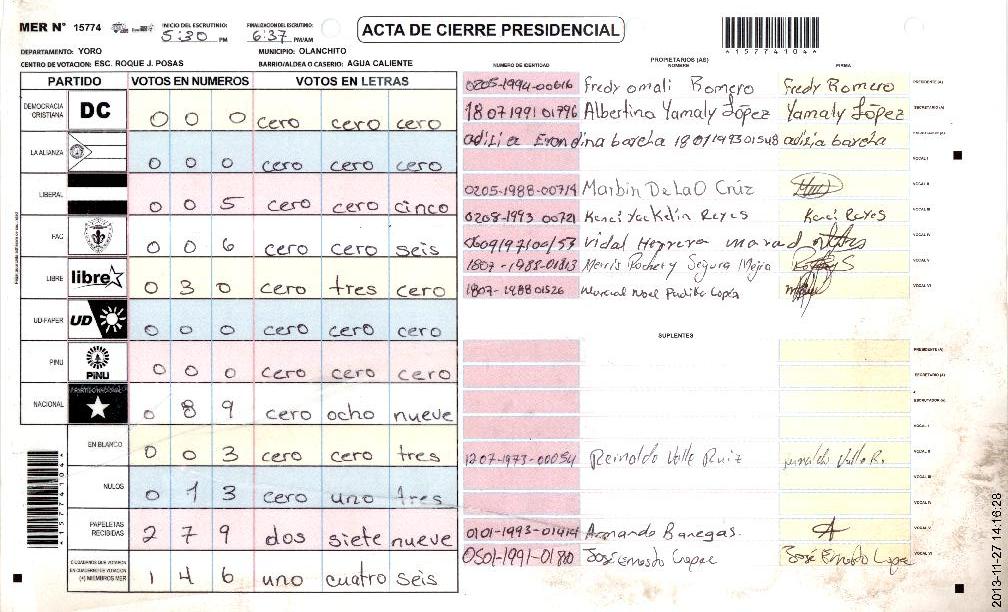 MER Nº 15774
INICIO DEL ESCRUTINIO:
5:30 PM
FINALIZACION DEL ESCRUTINIO:
6:37 PM/AM
ACTA DE CIERRE PRESIDENCIAL
*15774104*
DEPARTAMENTO: YORO
MUNICIPIO: OLANCHITO
CENTRO DE VOTACION: ESC. ROQUE J. POSAS
BARRIO/ALDEA O CASERIO: AGUA CALIENTE
PARTIDO VOTOS EN NUMEROS VOTOS EN LETRAS
DEMOCRACIA CRISTIANA DC 0 0 0 cero cero cero
LA ALIANZA 0 0 0 cero cero cero
LIBERAL 0 0 5 cero cero cinco
FAC 0 0 6 cero cero seis
LIBRE libre 0 3 0 cero tres cero
UD-FAPER UD 0 0 0 cero cero cero
PINU PiNU 0 0 0 cero cero cero
NACIONAL 0 8 9 cero ocho nueve
EN BLANCO 0 0 3 cero cero tres
NULOS 0 1 3 cero uno tres
PAPELETAS RECIBIDAS 2 7 9 dos siete nueve
CIUDADANOS QUE VOTARON EN CUADERNO DE VOTACION (+) MIEMBROS MER 1 4 6 uno cuatro seis
*15774104*
PROPIETARIOS (AS)
NUMERO DE IDENTIDAD NOMBRE FIRMA
0205-1994-00616 Fredy omali Romero Fredy Romero PRESIDENTE (A)
1807 1991 01796 Albertina Yamaly López Yamaly López SECRETARIO (A)
adilia Erondina barcha 1801199301548 adilia barcha
VOCAL I
0205-1988-00714 Marbin De La O Crúz VOCAL II
0208-1993 00721 Kenci Yackelin Reyes Kenci Reyes VOCAL III
Vidal Herrera VOCAL IV
1807-1988-01813 Segura Mejia VOCAL V
1807-1988 01526 Padilla VOCAL VI
SUPLENTES
PRESIDENTE (A)
SECRETARIO (A)
ESCRUTADOR (A)
VOCAL I
1207-1973-00054 Reinaldo Valle Ruiz VOCAL II
VOCAL III
VOCAL IV
0101-1993-01414 Armando Banegas. VOCAL V
0501-1991-01780 José Ernesto VOCAL VI
2013-11-27 14:16:28